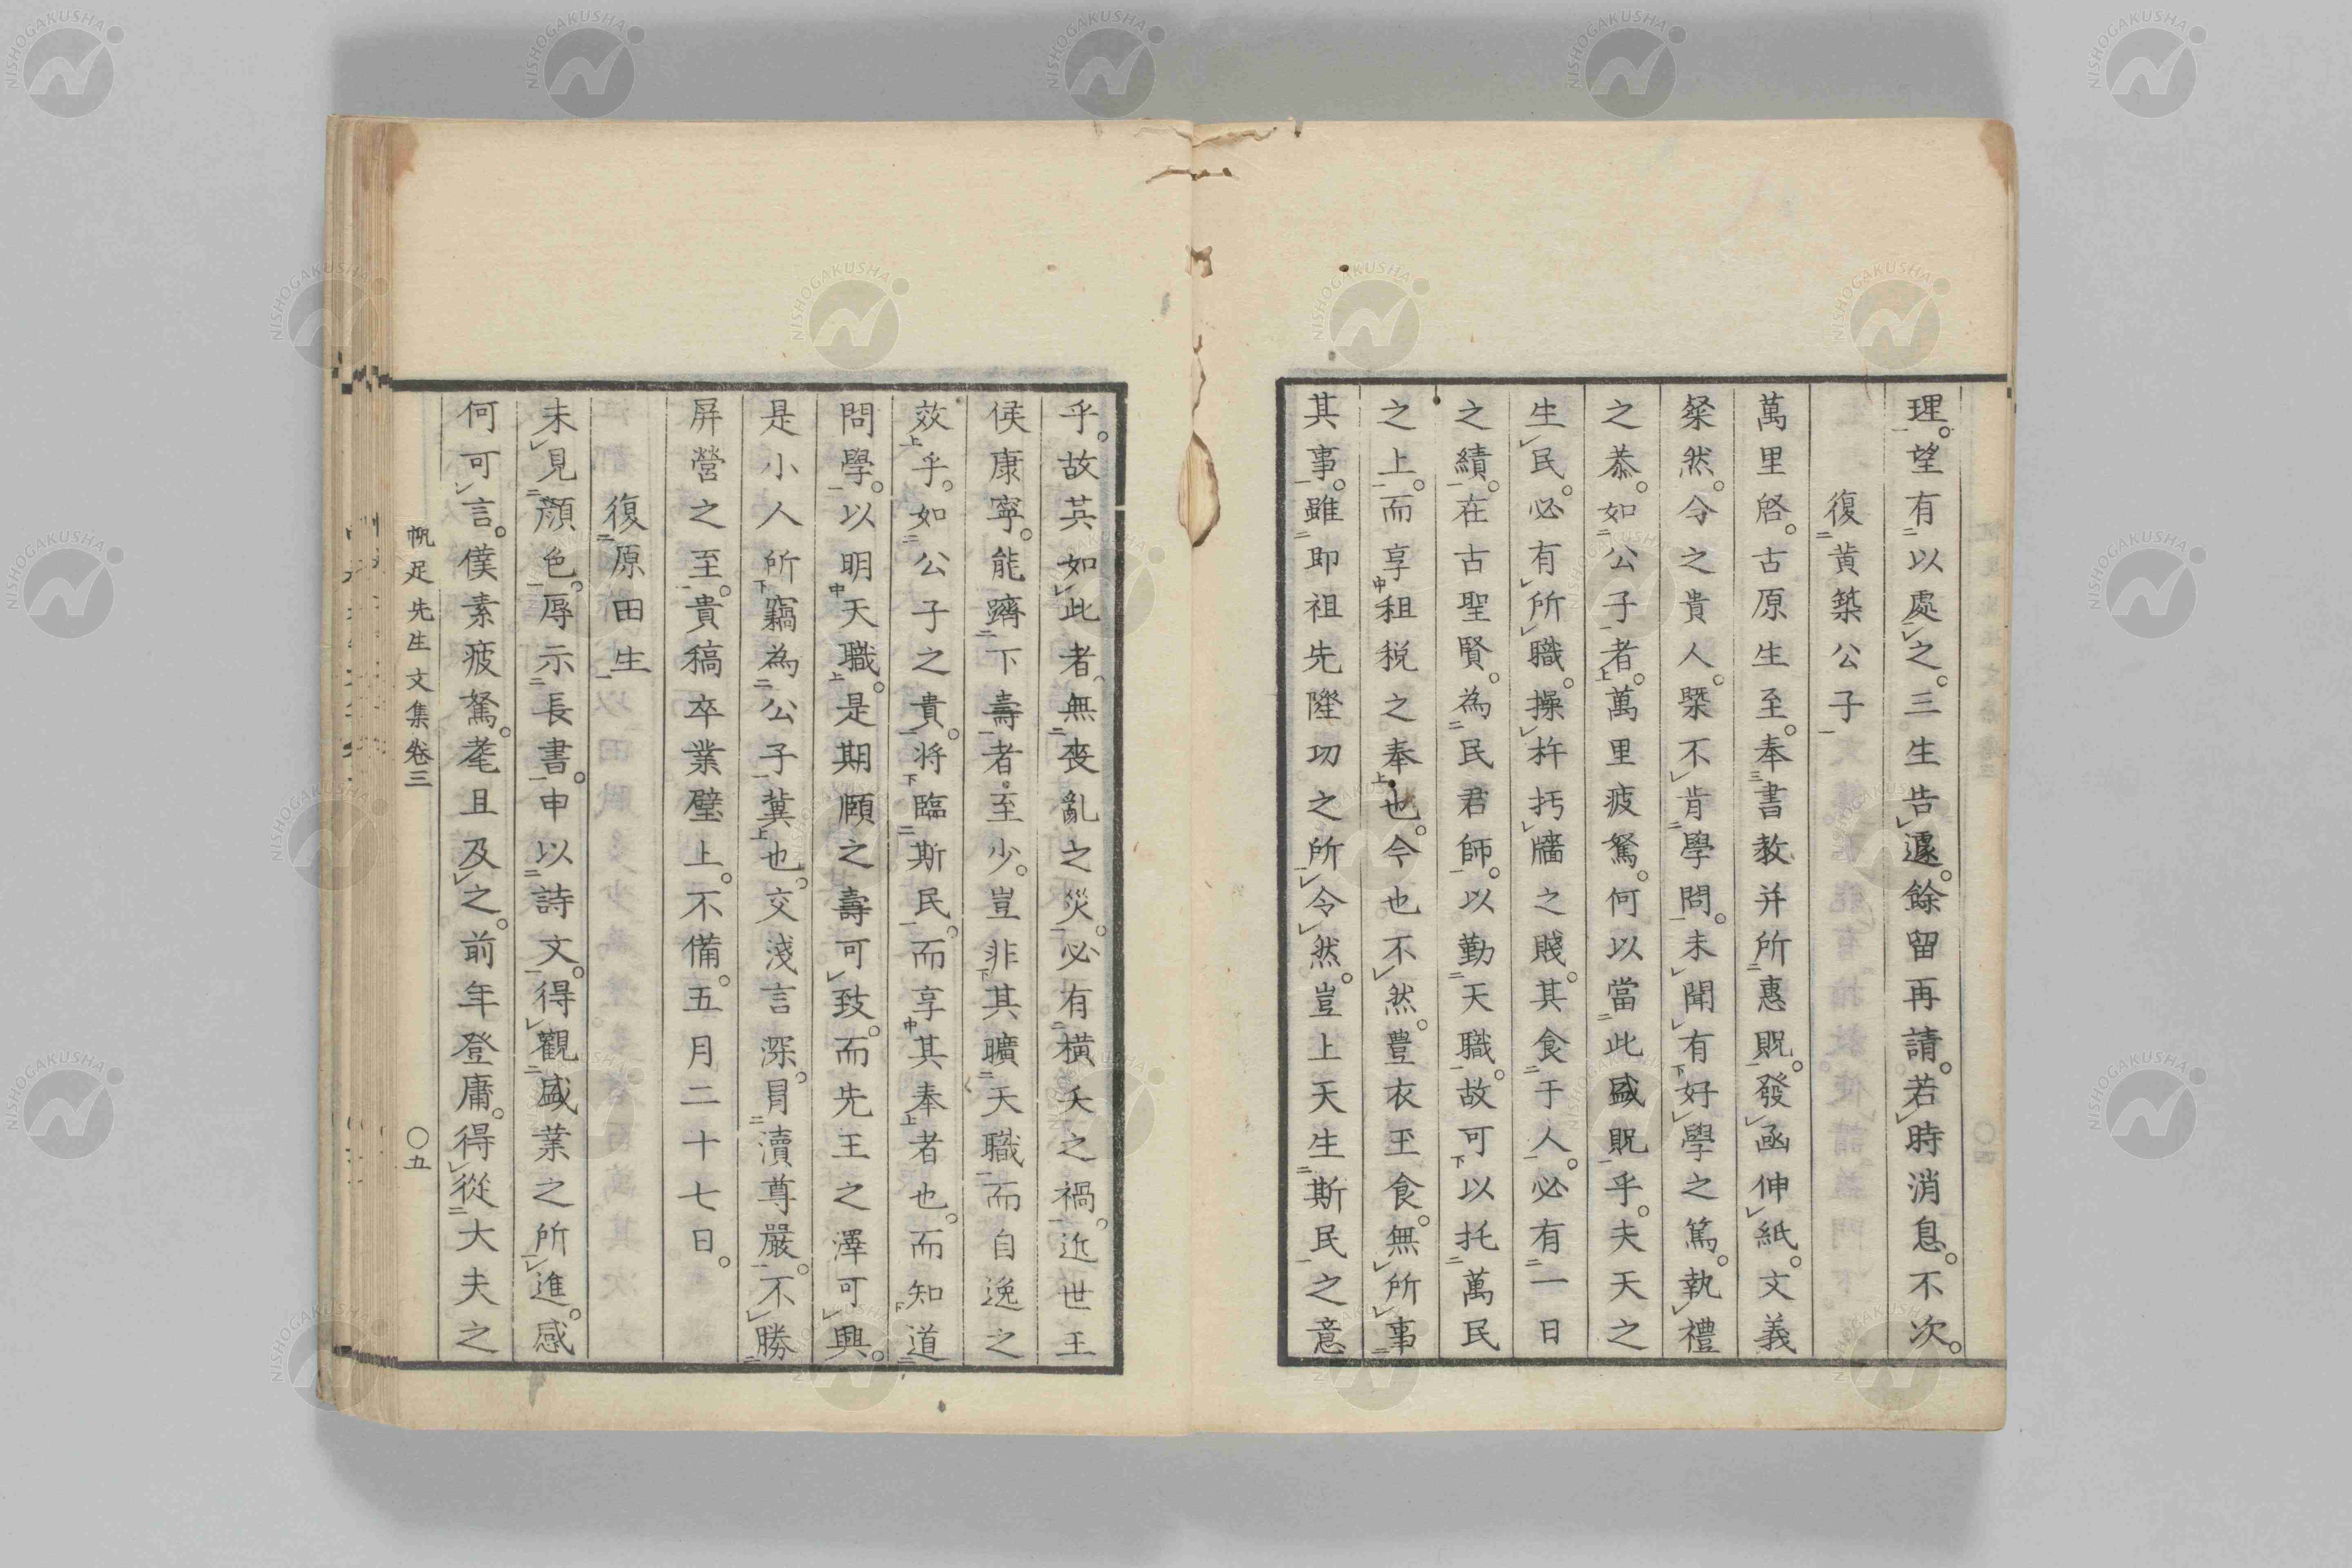 理。望有以處之。三生告遽。餘留再請。若時消息。不次。
復黄築公子
萬里啓。古原生至。奉書教并所惠貺。發凾伸紙。文義
粲然。今之貴人。槩不肯學問。未聞有好學之篤。執禮
之恭。如公子者。萬里疲駑。何以當此盛貺乎。夫天之
生民。必有所職。操杵抅牆之賤。其食于人。必有一日
之績。在古聖賢。為民君師。以勤天職。故可以托萬民
之上。而享租税之奉也。今也不然。豊衣玉食。無所事
其事。雖即祖先隆功之所令然。豈上天生斯民之意
乎。故英如此者、無喪亂之災。必有橫夭之禍。近世王
侯康寧。能躋下壽者。至少。豈非其曠天職而自逸之
效乎。如公子之貴。将臨斯民。而享其奉者也。而知道
問學。以明天職。是期頤之壽可致。而先王之澤可興。
是小人所竊為公子冀也。交淺言深。冒瀆尊嚴。不勝
屏營之至。貴稿卒業璧上。不備。五月二十七日。
復原田生
未見顔色。辱示長書。申以詩文。得觀盛業之所進。感
何可言。僕素疲駑。耄且及之。前年登庸。得從大夫之
帆足先生文集卷三 〇五